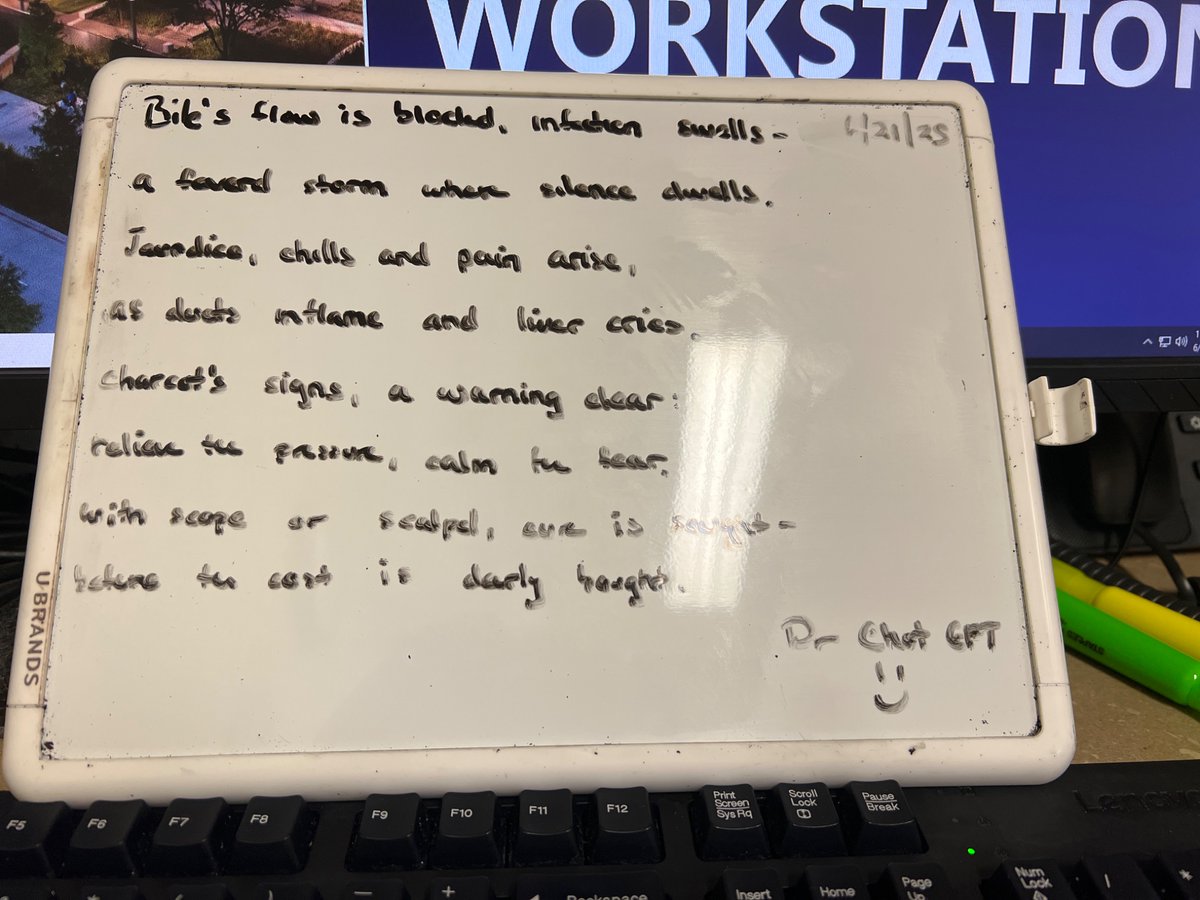 WORKSTATION
Bile's flow is blocked, infection swells - 6/21/25
a fevered storm where silence dwells.
Jaundice, chills and pain arise,
as ducts inflame and liver cries.
Charcot's signs, a warning clear:
relieve the pressure, calm the fear.
with scope or scalpel, cure is sought -
before the cost is dearly bought.
Dr Chat GPT
U BRANDS
F5 F6 F7 F8 F9 F10 F11 F12
Print Screen SysRq
Scroll Lock
Pause Break
Lenovo
Backspace
Insert Home Page Up
Num Lock
/ *